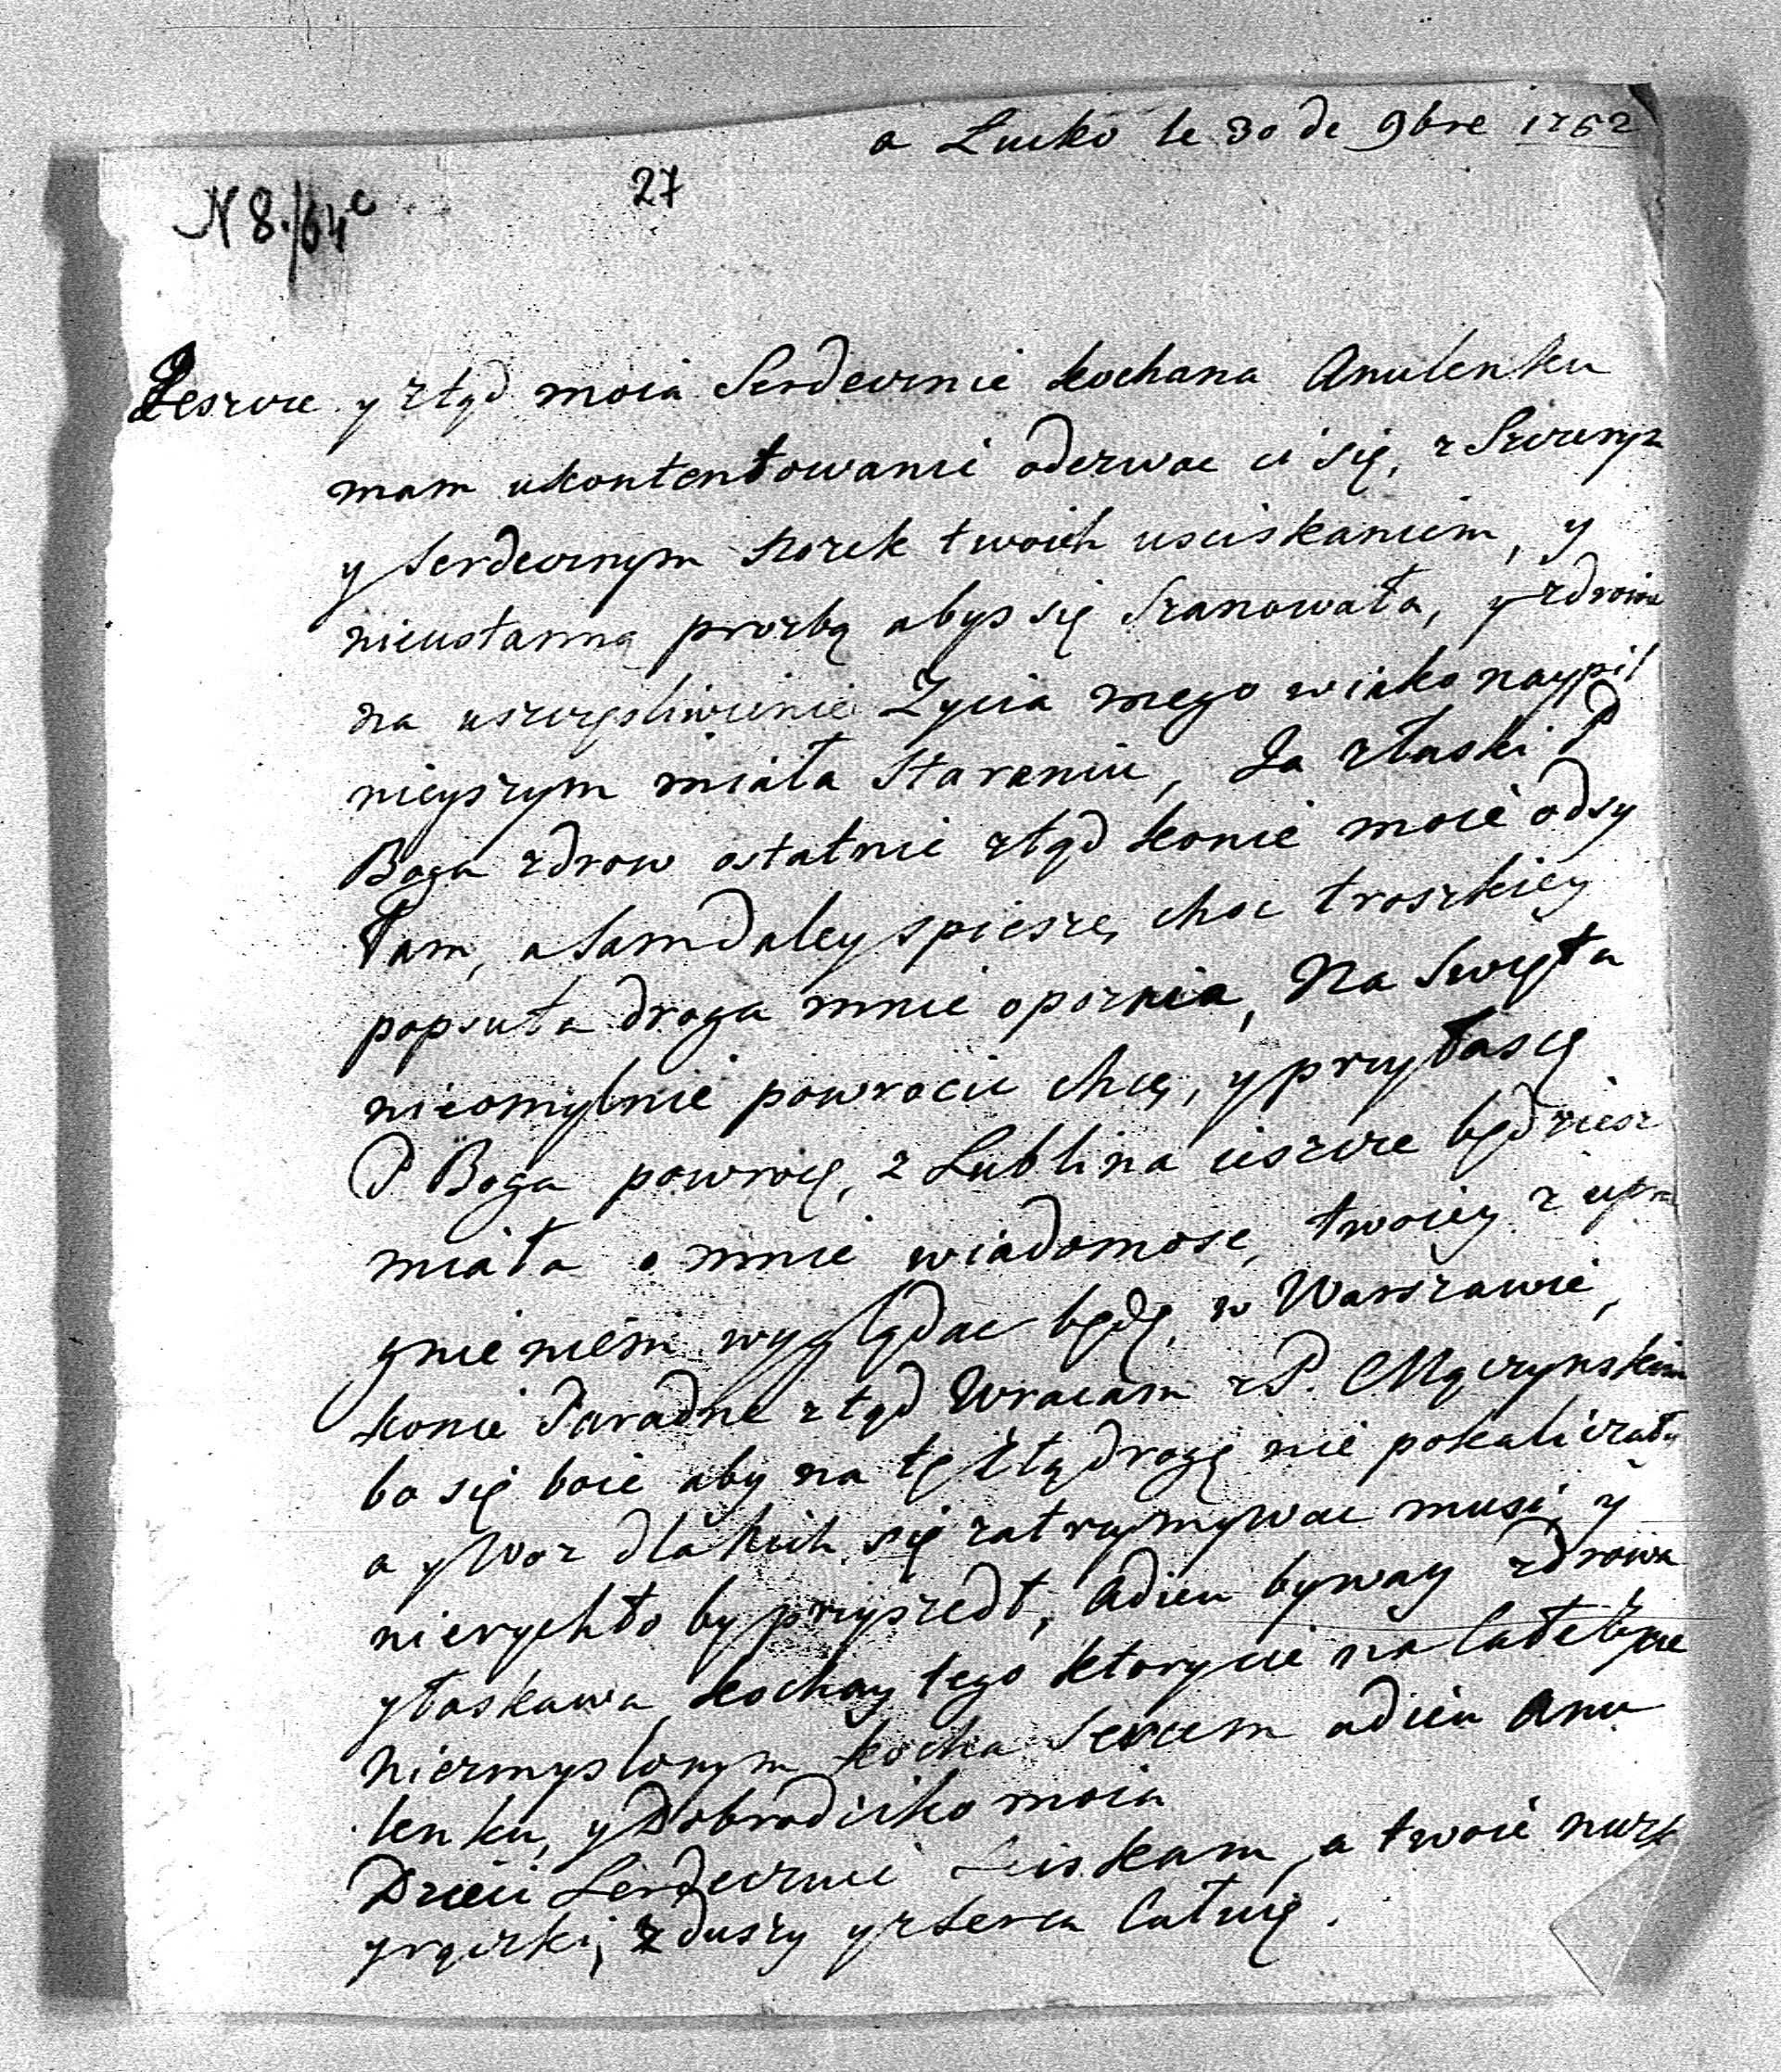 a Lucko le 30 de 9bre 1762
27
N 8./64c
Jeszcze y ztąd moia Serdecznie kochana Anulenku
mam ukontentowanie oderwac ci się, z Szczerym
y Serdecznym Nozek twoich usciskaniem, y
nieustanną prozbą abys się Szanowała, y zdrowie
na uszczęsliwienie Zycia mego w iako naypil
nieyszym miała Staraniu, Ja złaski P
Boga zdrow ostatnie ztąd konie moie odsy
łam, a Sam daley spieszę, choc troszkiey
popsuta droga mnie opoznia, Na Swięta
nieomylnie powrocic chcę, y przy łasce
P Boga powrocę, z Lublina ieszcze będziesz
miała o mnie wiadomosc, twoiey z upra
gnieniem wyglądac będę, w Warszawie,
konie Paradne ztąd Wracam z P. Mączynskim
bo się boie aby na tę złą drogę nie pokaliczały
a y Woz dla nich się zatrzymywac musi, y
nierychło by przyszedł, Adieu byway zdrowa
y łaskawa kochay tego ktory cie na całe życie
niezmyslonym kocha Sercem adieu Anu
lenku, y Dobrodziko moia
Dzieci Serdecznie Sciskam, a twoie nuzk
y rączki, z duszy y z Serca Całuię.